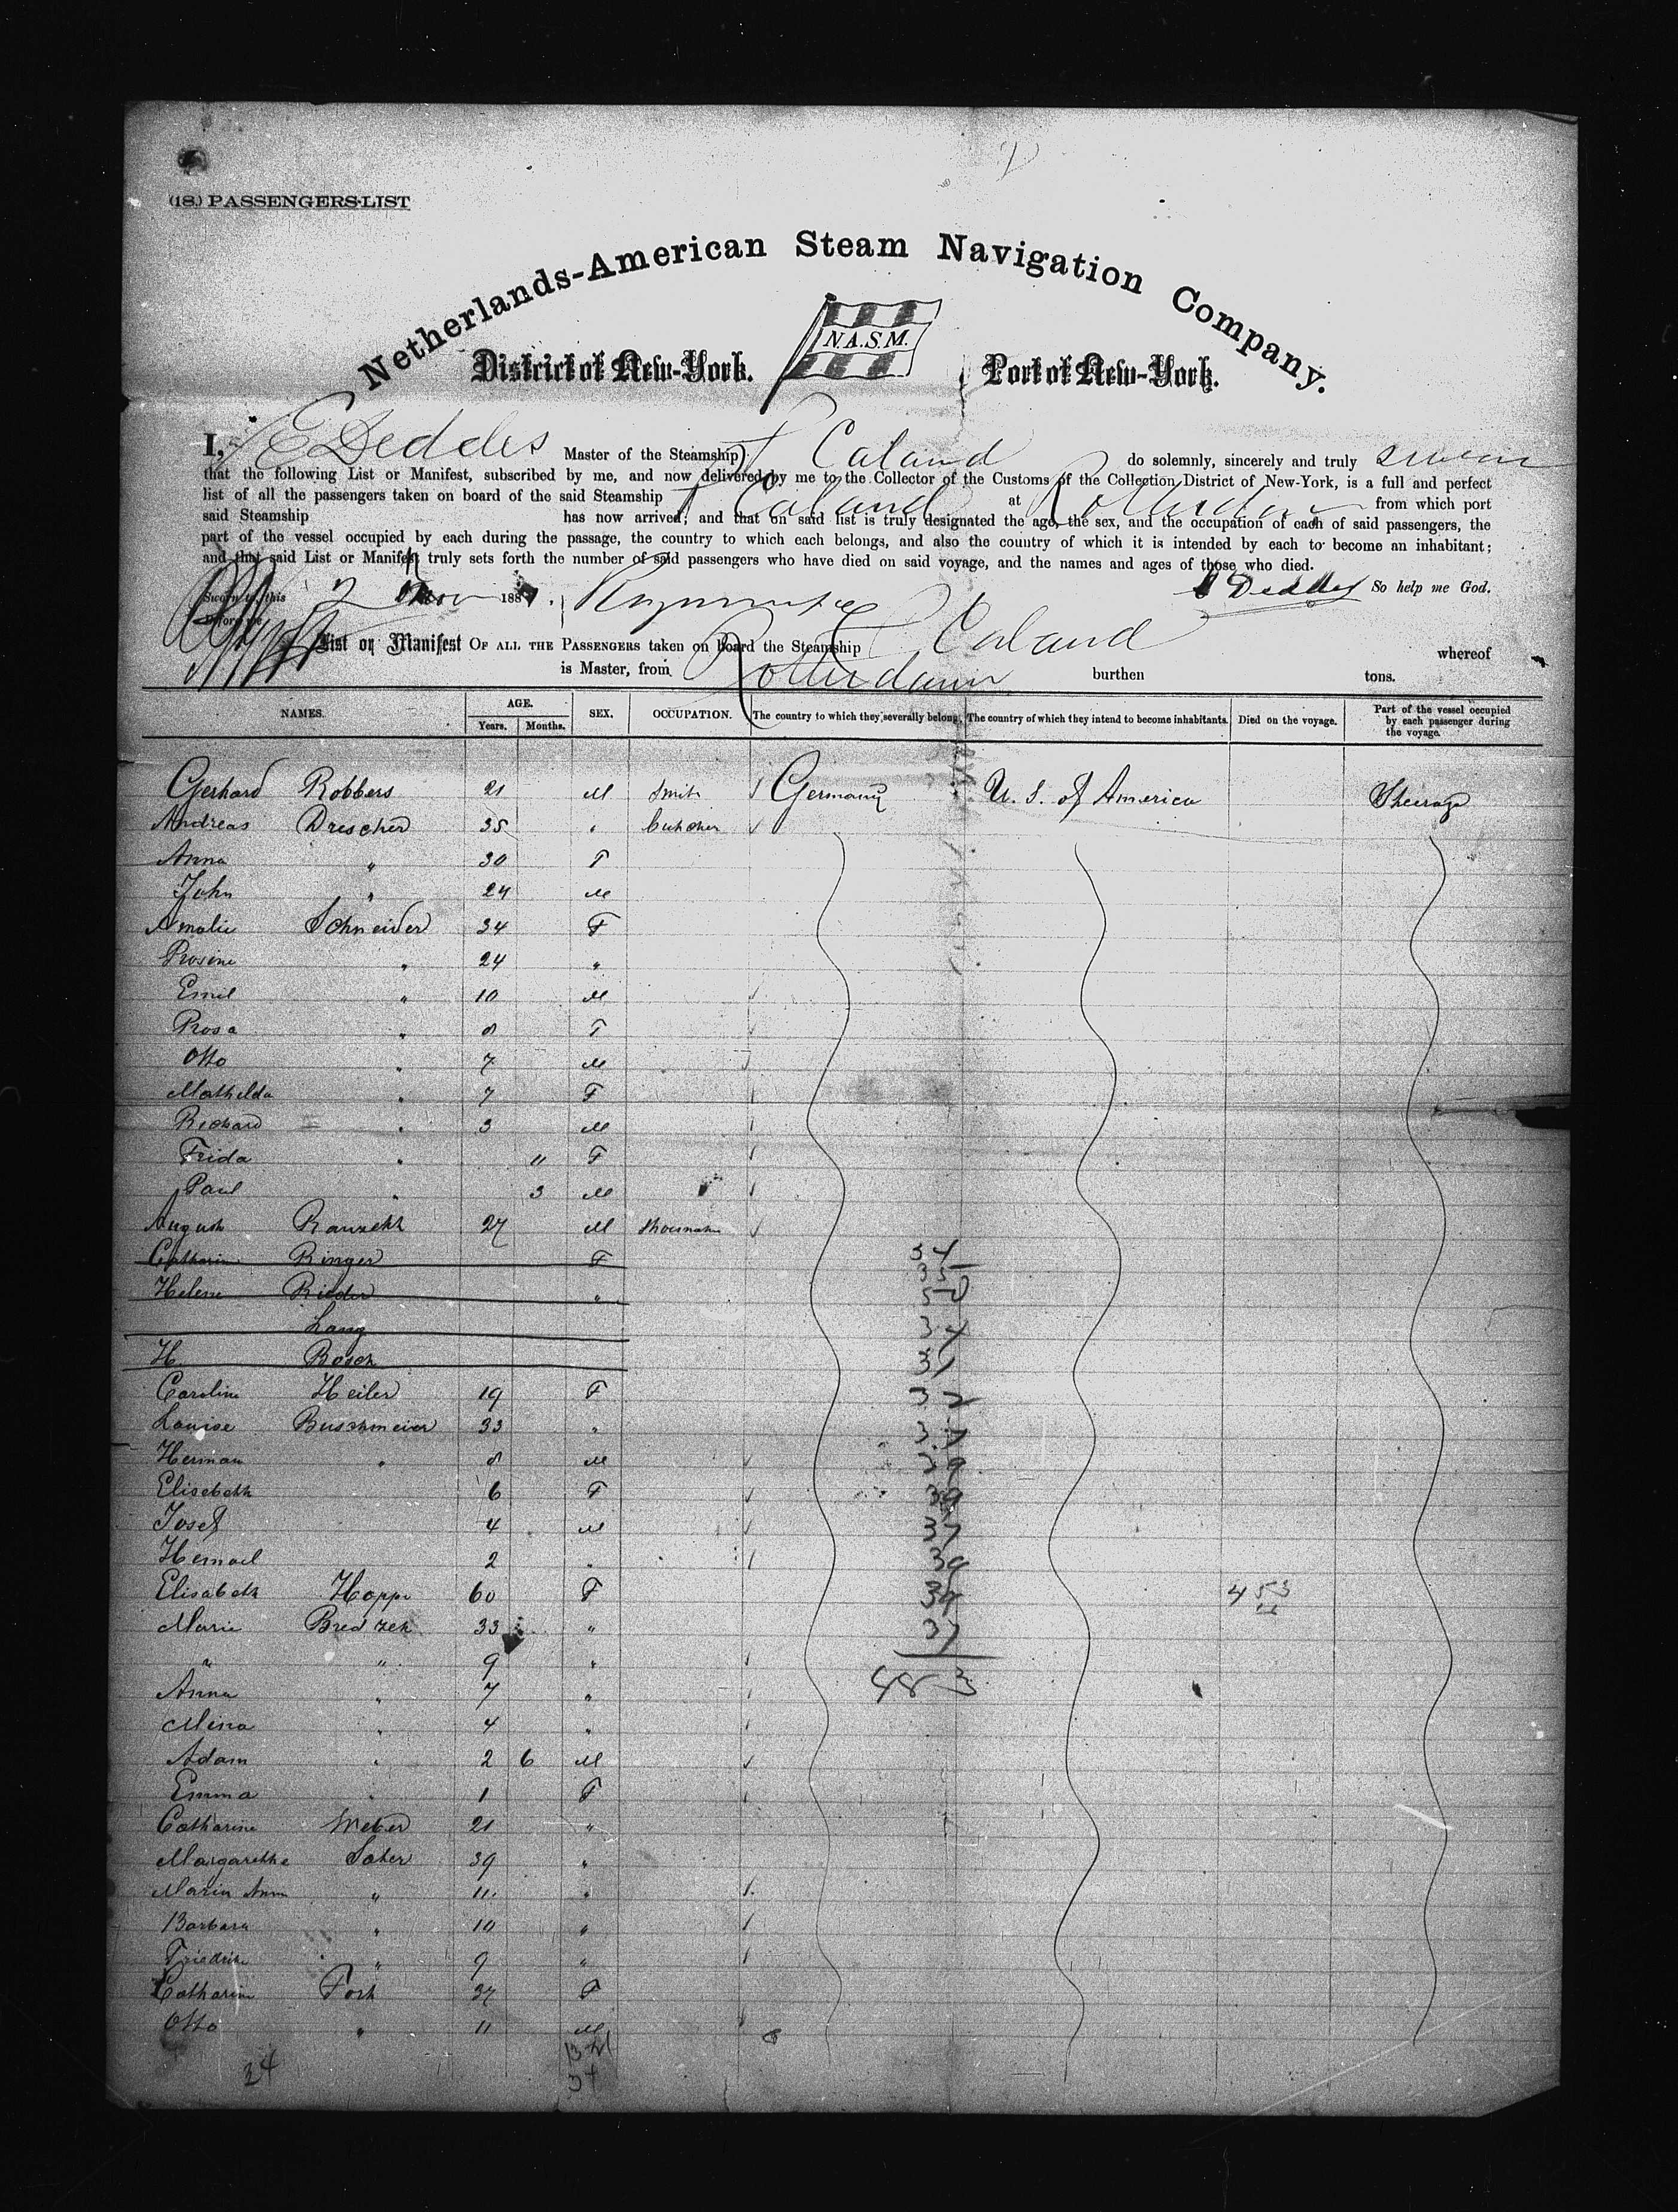 (18.) PASSENGERS-LIST
Netherlands-American Steam Navigation Company.
N.A.S.M.
District of New-York. Port of New-York.
I, E Deddes Master of the Steamship Caland do solemnly, sincerely and truly swear
that the following List or Manifest, subscribed by me, and now delivered by me to the Collector of the Customs of the Collection District of New-York, is a full and perfect
list of all the passengers taken on board of the said Steamship Caland at Rotterdam from which port
said Steamship has now arrived; and that on said list is truly designated the age, the sex, and the occupation of each of said passengers, the
part of the vessel occupied by each during the passage, the country to which each belongs, and also the country of which it is intended by each to become an inhabitant;
and that said List or Manifest truly sets forth the number of said passengers who have died on said voyage, and the names and ages of those who died.
Sworn to this 2 Nov 188 Deddes So help me God.
Before me
List or Manifest OF ALL THE PASSENGERS taken on board the Steamship Caland whereof
is Master, from Rotterdam burthen tons.
NAMES. AGE. Years. Months. SEX. OCCUPATION. The country to which they severally belong. The country of which they intend to become inhabitants. Died on the voyage. Part of the vessel occupied by each passenger during the voyage.
Gerhard Robbers 21 M Smith Germany U. S. of America Steerage
Andreas Drescher 35 " butcher
Anna " 30 F
John " 24 M
Amalie Schneider 34 F
Rosine " 24 "
Emil " 10 M
Rosa " 8 F
Otto " 7 M
Mathilda " 7 F
Richard " 3 M
Frida " 11 F
Paul " 3 M
August 27 M Shoemaker
Catharine Ringer F 34
Helene Rieder " 35
50
Lang 34
H. Bosch 31
Caroline Heiler 19 F 32
Louise Buschmeier 33 "
Herman " 8 M 39
Elisabeth 6 F 39
Josef 4 M 37
2 " 39
Elisabeth Hoppe 60 F 39 453
Marie 33 " 37
" " 9 " 483
Anna " 7 "
Mina " 4 "
Adam " 2 6 M
Emma " 1 F
Catharine Weber 21 "
Margarethe Sater 39 "
Maria Anna " 11 "
Barbara " 10 "
Friedrike " 9 "
Catharine 37 F
Otto " 11 M
34 34